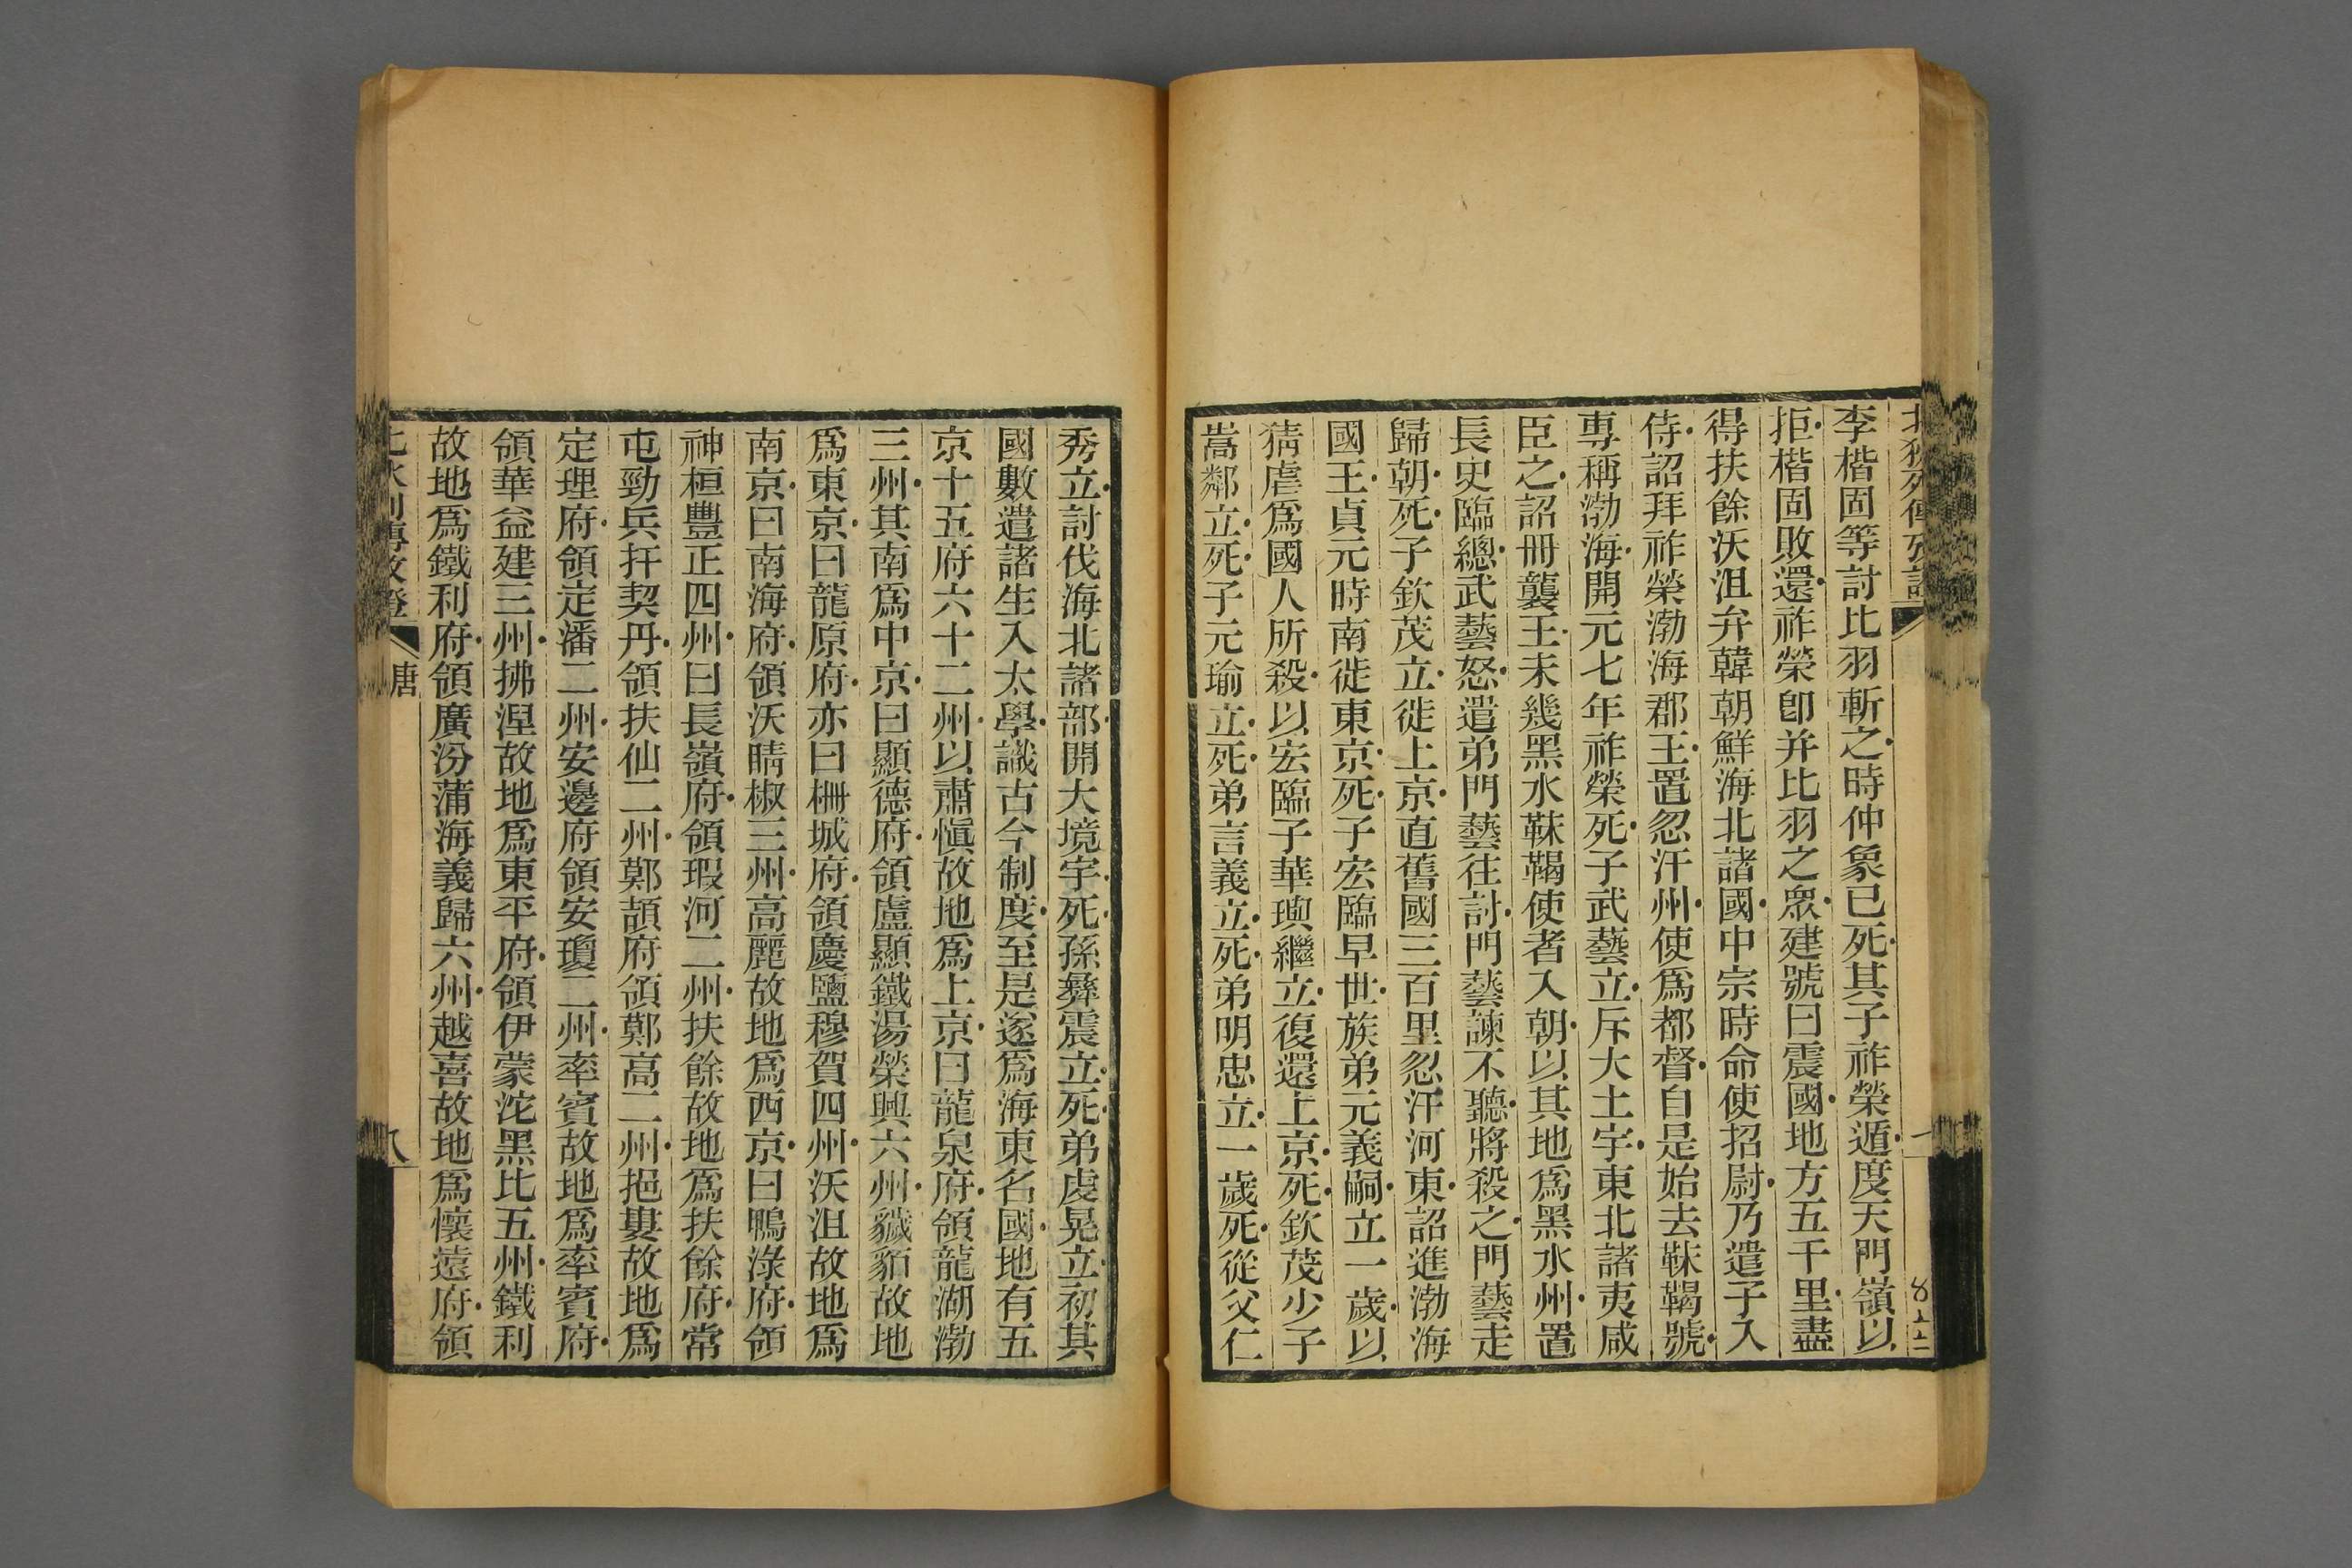 李楷固等討比羽斬之時仲象已死其子祚榮遁度天門嶺以
拒楷固敗還祚榮卽并比羽之衆建號曰震國地方五千里盡
得扶餘沃沮弁韓朝鮮海北諸國中宗時命使招尉乃遣子入
侍詔拜祚榮渤海郡王置忽汗州使爲都督自是始去靺鞨號
專稱渤海開元七年祚榮死子武藝立斥大土宇東北諸夷咸
臣之詔冊襲王未幾黑水靺鞨使者入朝以其地爲黑水州置
長史臨總武藝怒遣弟門藝往討門藝諫不聽將殺之門藝走
歸朝死子欽茂立徙上京直舊國三百里忽汗河東詔進渤海
國王貞元時南徙東京死子宏臨早世族弟元義嗣立一歲以
猜虐爲國人所殺以宏臨子華璵繼立復還上京死欽茂少子
嵩鄰立死子元瑜立死弟言義立死弟明忠立一歲死從父仁
秀立討伐海北諸部開大境宇死孫彝震立死弟虔晃立初其
國數遣諸生入太學識古今制度至是遂爲海東名國地有五
京十五府六十二州以肅愼故地爲上京曰龍泉府領龍湖渤
三州其南爲中京曰顯德府領盧顯鐵湯榮興六州獩貊故地
爲東京曰龍原府亦曰柵城府領慶鹽穆賀四州沃沮故地爲
南京曰南海府領沃睛椒三州高麗故地爲西京曰鴨淥府領
神桓豐正四州曰長嶺府領瑕河二州扶餘故地爲扶餘府常
屯勁兵扞契丹領扶仙二州鄭頡府領鄭高二州挹婁故地爲
定理府領定潘二州安邊府領安瓊二州率賓故地爲率賓府
領華益建三州拂涅故地爲東平府領伊蒙沱黑比五州鐵利
故地爲鐵利府領廣汾蒲海義歸六州越喜故地爲懷遠府領
唐
八